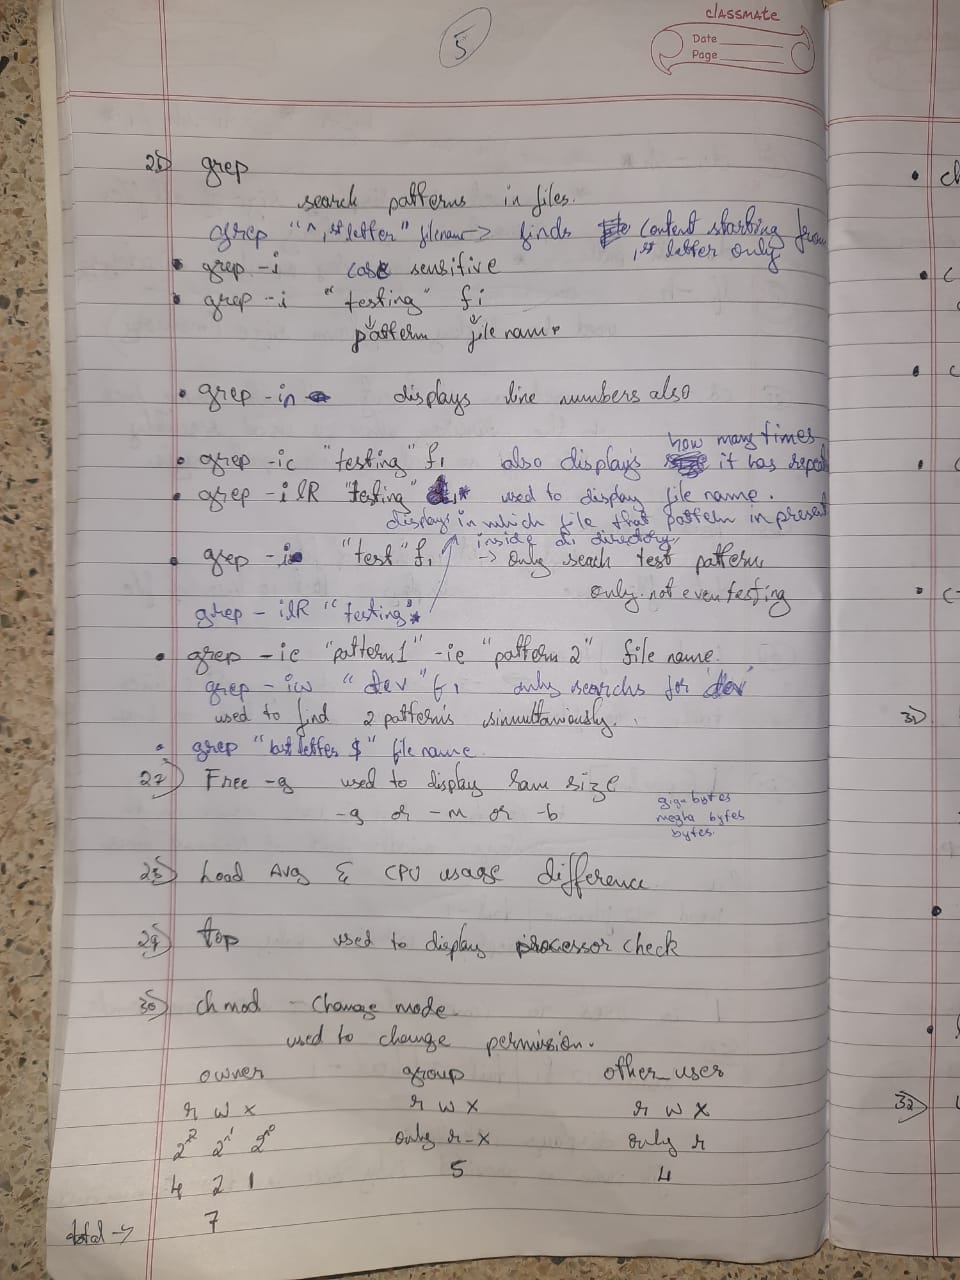 classmate
Date
Page
5
grep
search patterns in files.
grep "^,1st letter" filename -> finds content starting from
1st letter only
• grep -i case sensitive
• grep -i "testing" f1
pattern file name
• grep -in displays line numbers also
how many times
• grep -ic "testing" f1 also displays it has repeat
• grep -ilR "testing" * used to display file name.
displays in which file that pattern in present
inside a directory
• grep -i "test" f1 -> only seach test pattern
only. not even testing
grep -ilR "testing" *
• grep -ie "pattern1" -ie "pattern 2" file name.
grep -iw "dev" f1 only searchs for dev
used to find 2 patterns simultaniously.
• grep "last letter $" file name
27) Free -g used to display ram size
-g or -m or -b
giga bytes
megha bytes
bytes.
28) Load Avg & CPU usage difference
29) top used to display processor check
30) chmod - Change mode.
used to change permission.
owner group other user
r w x r w x r w x
2² 2¹ 2⁰ only r-x only r
4 2 1 5 4
total -> 7
31)
32)